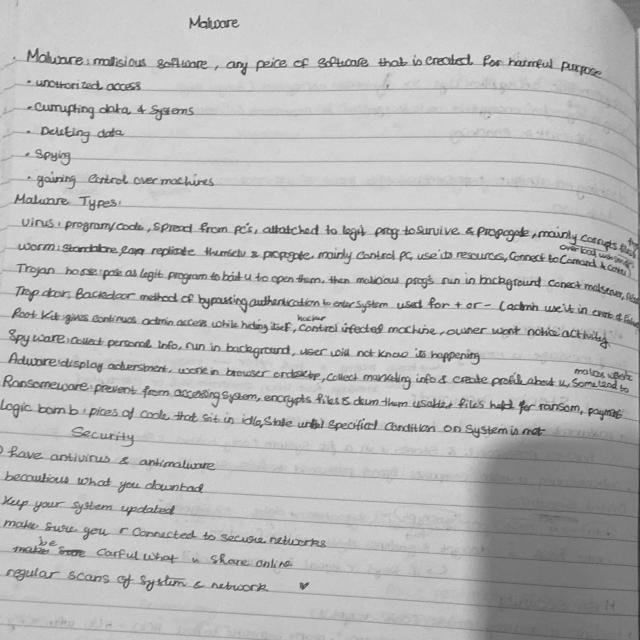 Malware
. Malware: mallisious software, any peice of software that is created for harmful purpose
• unauthorized access
• Currupting data, & Systems
• Deleting data
• Spying
• gaining Control over machines
Malware Types:
Virus: program/code, spread from pc's, attatched to legit prog to survive & propogate, mainly corrupts files
worm: Standalone, replicate themselv & propogate, mainly control PC, use its resources, Connect to Comand & control
Trojan horse: pose as legit program to bait u to open them, then malicious prog's run in background conect
Trap door: Backdoor method of bypassing authentication to enter system used for + or - (admin use it in
Root Kit: gives continues admin access while hiding itself, hacker Control infected machine, owner wont notice activity
Spyware: collect personal Info, run in background, user will not know is happening
Adware: display adversment, work in browser or desktop, collect marketing info & create profile about u, Some lead to malicos website
Ransomeware: prevent from accessing system, encrypts files & deem them usable, files held for ransom, payment
Logic bomb: pices of code that sit in idle, State until specified condition on system is met
Security
have antivirus & antimalware
becautious what you download
Keep your system updated
make sure you r connected to secure networks
be carful what u share online
regular scans of system & network ♥